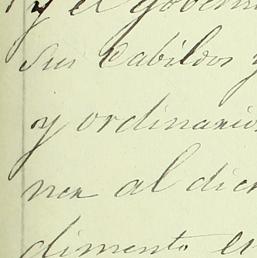 y el gobern
sus cabildos y
y ordinario
ner al dich
dimento en